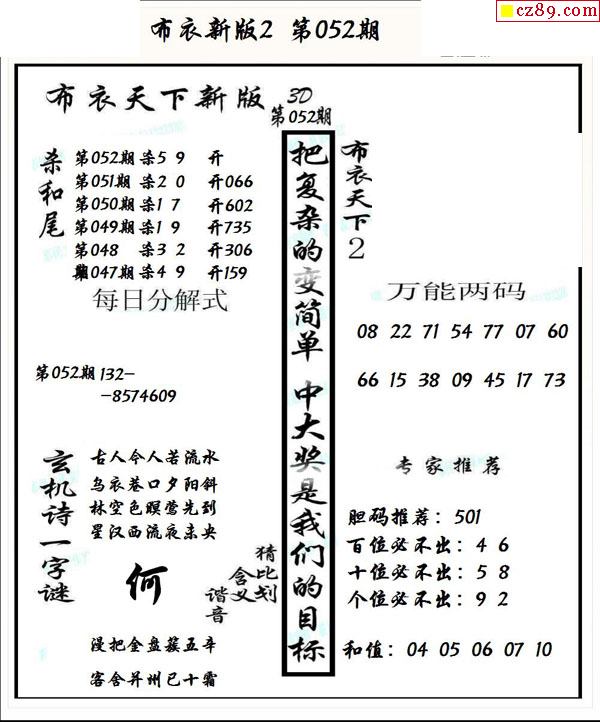 cz89.com
布衣新版2 第052期
布衣天下新版 3D
第052期
杀和尾
第052期 柒5 9 开
第051期 柒2 0 开066
第050期 柒1 7 开602
第049期 柒1 9 开735
第048 柒3 2 开306
047期 柒4 9 开159
每日分解式
第052期 132-
-8574609
玄机诗一字谜
古人今人若流水
乌衣巷口夕阳斜
林空色暝莺先到
星汉西流夜未央
何
猜比划
含义
谐音
漫把金盘簇五辛
客舍并州已十霜
把复杂的变简单 中大奖是我们的目标
布衣天下2
万能两码
08 22 71 54 77 07 60
66 15 38 09 45 17 73
专家推荐
胆码推荐：501
百位必不出：4 6
十位必不出：5 8
个位必不出：9 2
和值：04 05 06 07 10